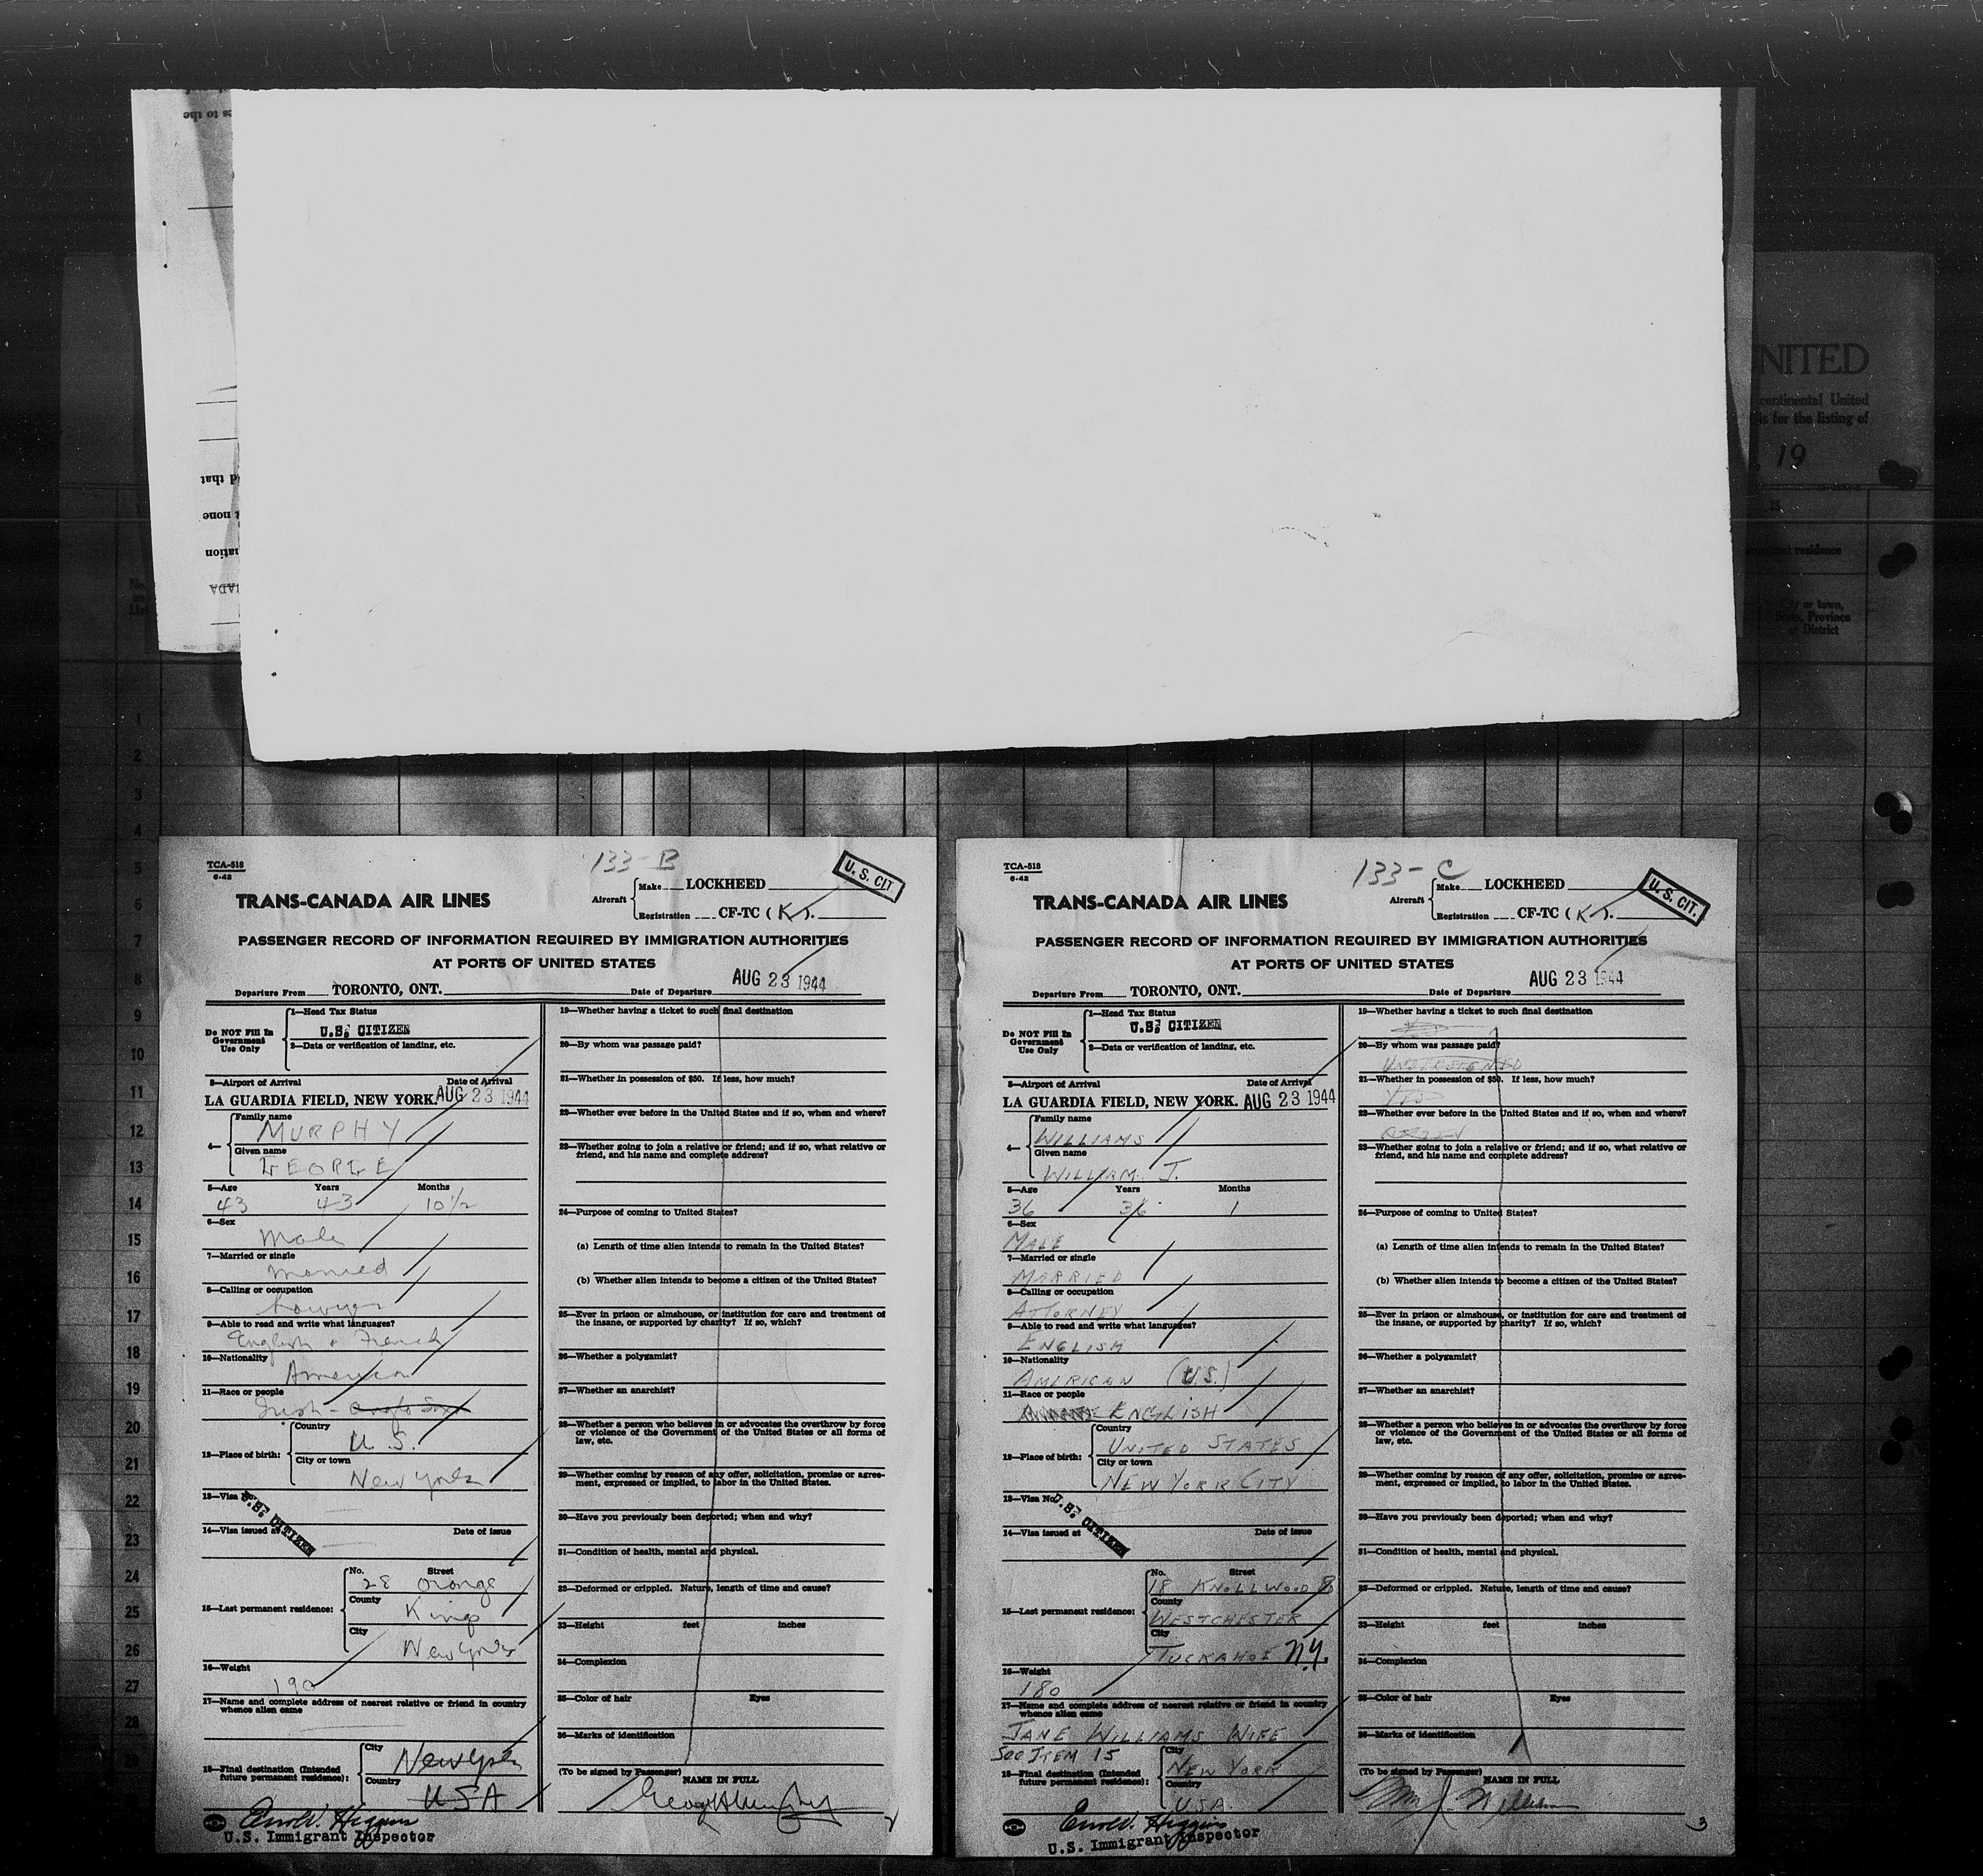 NITED
continental United
is for the listing of
19
residence
or town,
Province
or District
d that
none
nation
1
2
3
4
5
6
7
8
9
10
11
12
13
14
15
16
17
18
19
20
21
22
23
24
25
26
27
28
TCA-518
6-42
133-B
U. S. CIT.
TRANS-CANADA AIR LINES
Aircraft
Make LOCKHEED
Registration CF-TC (K).
PASSENGER RECORD OF INFORMATION REQUIRED BY IMMIGRATION AUTHORITIES
AT PORTS OF UNITED STATES
AUG 23 1944
Departure From TORONTO, ONT. Date of Departure
Do NOT Fill In
Government
Use Only
1—Head Tax Status
U.S. CITIZEN
2—Data or verification of landing, etc.
3—Airport of Arrival Date of Arrival
LA GUARDIA FIELD, NEW YORK. AUG 23 1944
4— Family name
MURPHY
Given name
GEORGE
5—Age Years Months
43 43 10 1/2
6—Sex
Male
7—Married or single
Married
8—Calling or occupation
Lawyer
9—Able to read and write what languages?
English + French
10—Nationality
American
11—Race or people
Irish - Anglo Saxon
12—Place of birth: Country
U.S.
City or town
New York
13—Visa No.
U.S. CITIZEN
14—Visa issued at Date of issue
15—Last permanent residence: No. Street
28 Orange
County
Kings
City
New York
16—Weight
190
17—Name and complete address of nearest relative or friend in country
whence alien came
18—Final destination (Intended
future permanent residence): City
New York
Country
USA
U.S. Immigrant Inspector
19—Whether having a ticket to such final destination
20—By whom was passage paid?
21—Whether in possession of $50. If less, how much?
22—Whether ever before in the United States and if so, when and where?
23—Whether going to join a relative or friend; and if so, what relative or
friend, and his name and complete address?
24—Purpose of coming to United States?
(a) Length of time alien intends to remain in the United States?
(b) Whether alien intends to become a citizen of the United States?
25—Ever in prison or almshouse, or institution for care and treatment of
the insane, or supported by charity? If so, which?
26—Whether a polygamist?
27—Whether an anarchist?
28—Whether a person who believes in or advocates the overthrow by force
or violence of the Government of the United States or all forms of
law, etc.
29—Whether coming by reason of any offer, solicitation, promise or agree-
ment, expressed or implied, to labor in the United States.
30—Have you previously been deported; when and why?
31—Condition of health, mental and physical.
32—Deformed or crippled. Nature, length of time and cause?
33—Height feet inches
34—Complexion
35—Color of hair Eyes
36—Marks of identification
(To be signed by Passenger)
NAME IN FULL
2
TCA-518
6-42
133-C
U. S. CIT.
TRANS-CANADA AIR LINES
Aircraft
Make LOCKHEED
Registration CF-TC (K).
PASSENGER RECORD OF INFORMATION REQUIRED BY IMMIGRATION AUTHORITIES
AT PORTS OF UNITED STATES
AUG 23 1944
Departure From TORONTO, ONT. Date of Departure
Do NOT Fill In
Government
Use Only
1—Head Tax Status
U.S. CITIZEN
2—Data or verification of landing, etc.
3—Airport of Arrival Date of Arrival
LA GUARDIA FIELD, NEW YORK. AUG 23 1944
4— Family name
WILLIAMS
Given name
WILLIAM J.
5—Age Years Months
36 36 1
6—Sex
MALE
7—Married or single
MARRIED
8—Calling or occupation
ATTORNEY
9—Able to read and write what languages?
ENGLISH
10—Nationality
AMERICAN (U.S.)
11—Race or people
ENGLISH
12—Place of birth: Country
UNITED STATES
City or town
NEW YORK CITY
13—Visa No.
U.S. CITIZEN
14—Visa issued at Date of issue
15—Last permanent residence: No. Street
18 KNOLLWOOD
County
WESTCHESTER
City
TUCKAHOE N.Y.
16—Weight
180
17—Name and complete address of nearest relative or friend in country
whence alien came
JANE WILLIAMS WIFE
SEE ITEM 15
18—Final destination (Intended
future permanent residence): City
NEW YORK
Country
U.S.A.
U.S. Immigrant Inspector
19—Whether having a ticket to such final destination
20—By whom was passage paid?
UNDERSIGNED
21—Whether in possession of $50. If less, how much?
YES
22—Whether ever before in the United States and if so, when and where?
23—Whether going to join a relative or friend; and if so, what relative or
friend, and his name and complete address?
24—Purpose of coming to United States?
(a) Length of time alien intends to remain in the United States?
(b) Whether alien intends to become a citizen of the United States?
25—Ever in prison or almshouse, or institution for care and treatment of
the insane, or supported by charity? If so, which?
26—Whether a polygamist?
27—Whether an anarchist?
28—Whether a person who believes in or advocates the overthrow by force
or violence of the Government of the United States or all forms of
law, etc.
29—Whether coming by reason of any offer, solicitation, promise or agree-
ment, expressed or implied, to labor in the United States.
30—Have you previously been deported; when and why?
31—Condition of health, mental and physical.
32—Deformed or crippled. Nature, length of time and cause?
33—Height feet inches
34—Complexion
35—Color of hair Eyes
36—Marks of identification
(To be signed by Passenger)
NAME IN FULL
Wm J. Williams
3